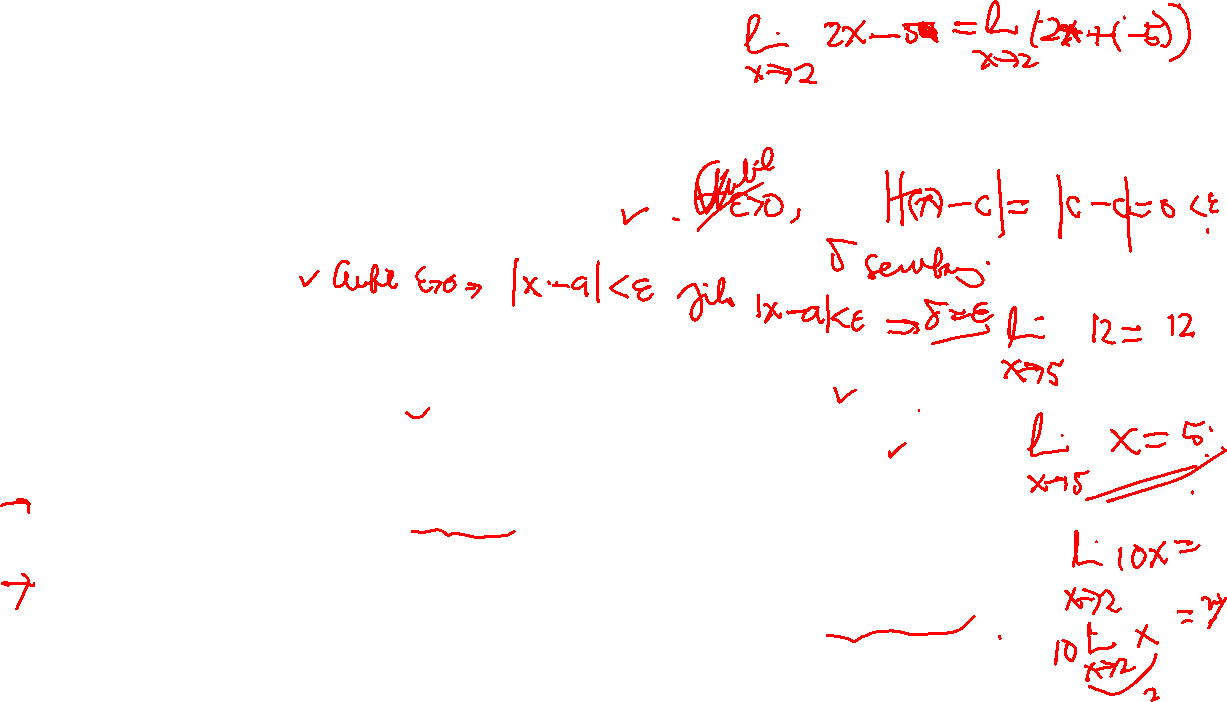 lim 2x - 5 = lim (2x + (-5))
x→2 x→2
✓ . ε>0, |f(x) - c| = |c - c| = 0 < ε
δ sembarang.
✓ Ambil ε>0 ⇒ |x - a| < ε jika |x - a| < ε ⇒ δ = ε
lim 12 = 12
x→5
lim x = 5
x→5
lim 10x =
x→2
10 lim x =
x→2
2